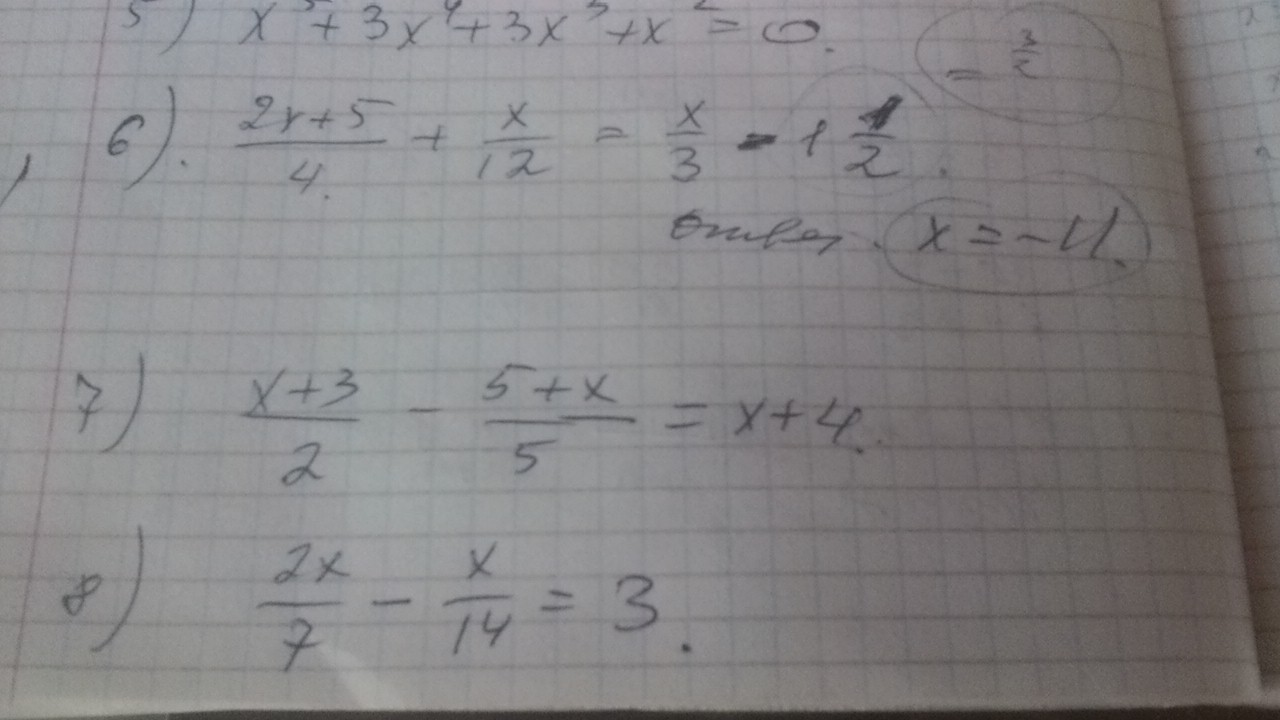 5) x⁵+3x⁴+3x³+x²=0.
= 3/2
6). (2x+5)/4. + x/12 = x/3 - 1 1/2.
ответ. x=-11.
7) (x+3)/2 - (5+x)/5 = x+4.
8) 2x/7 - x/14 = 3.